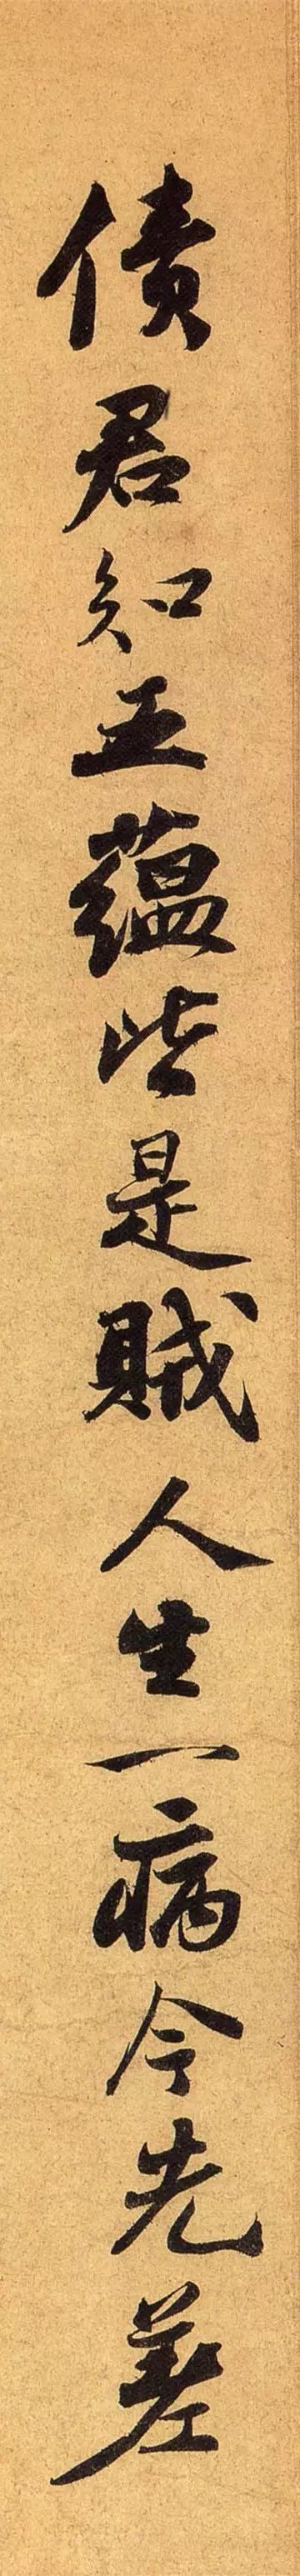 債君知五蘊皆是賊人生一病今先差